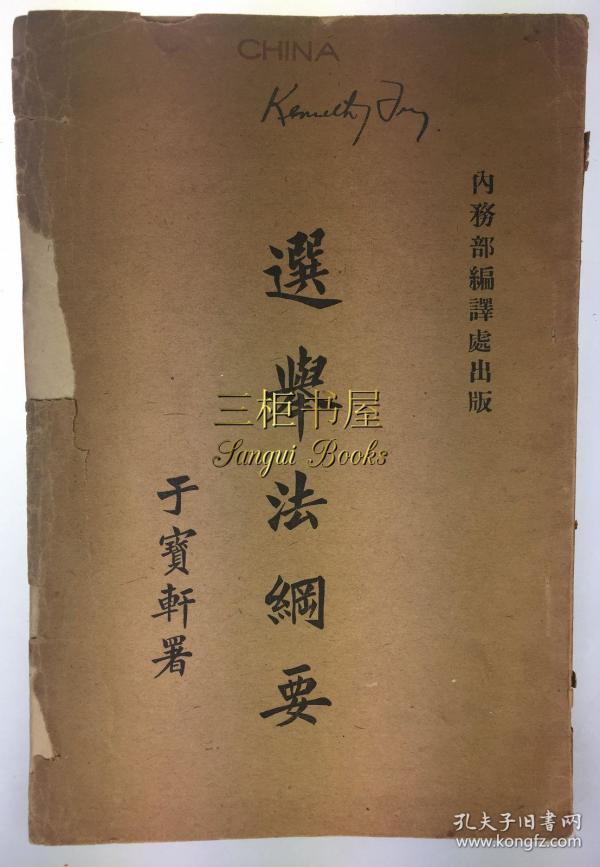 CHINA
內務部編譯處出版
選舉法綱要
于寶軒署
三柜书屋
Sangui Books
孔夫子旧书网
www.kongfz.com